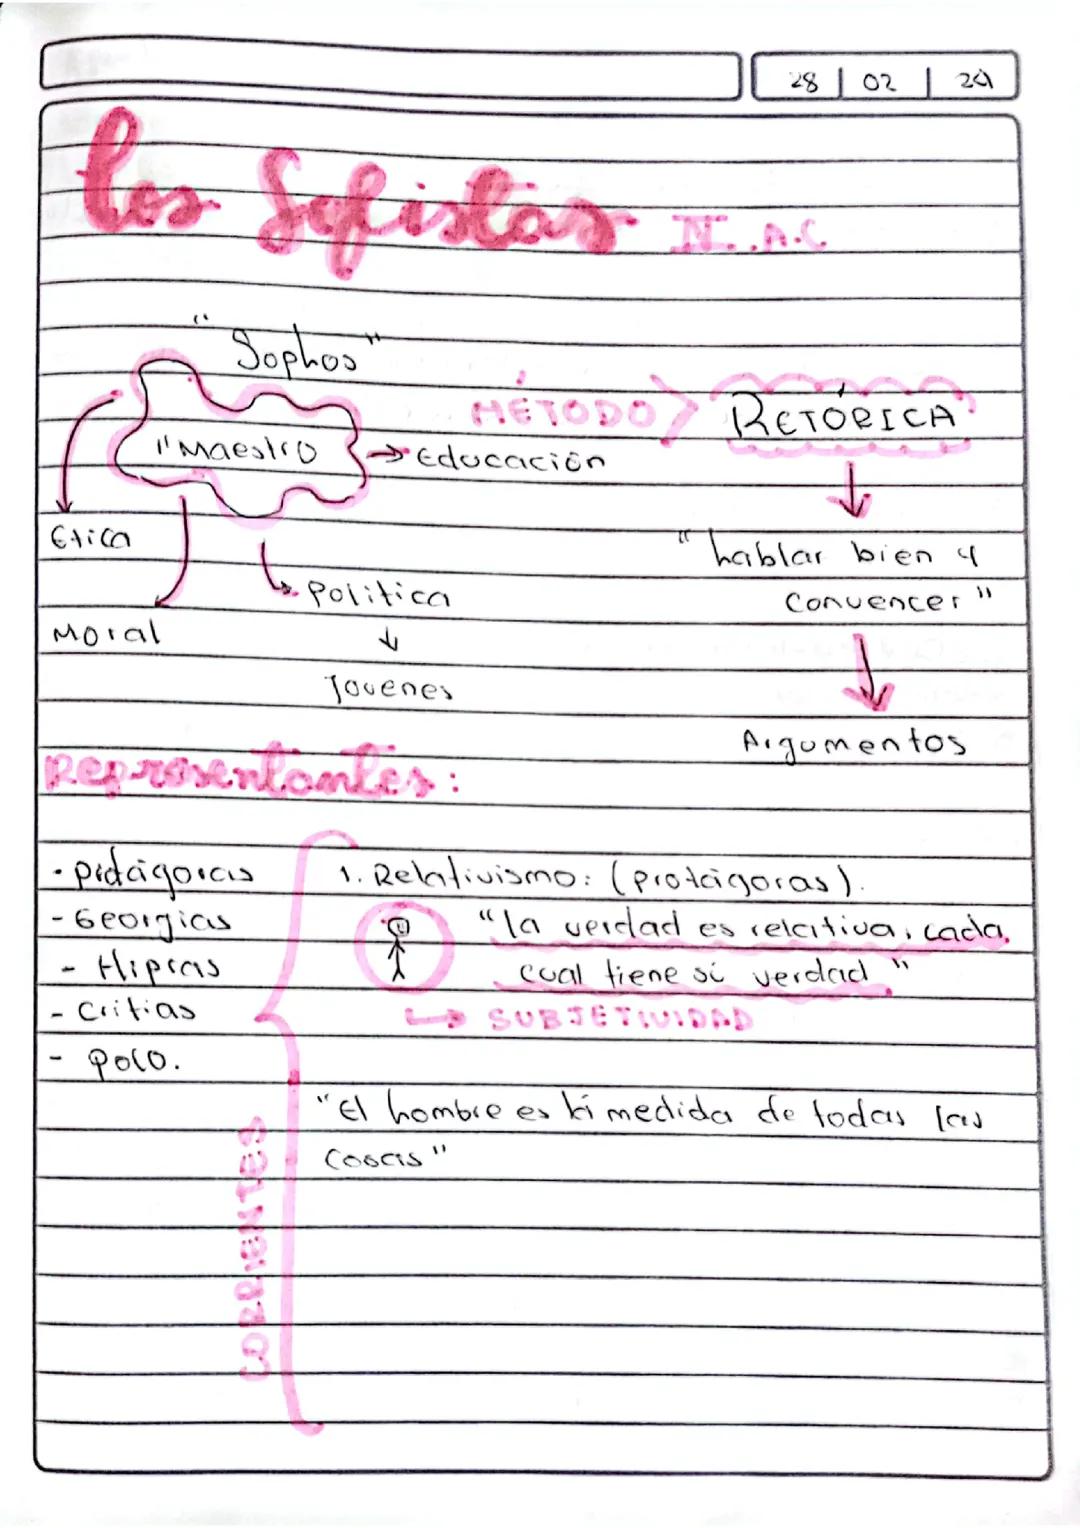 28 | 02 | 24
los Sofistas IV. A.C
"Sophos"
MÉTODO > RETÓRICA
"Maestro → Educación
Etica
"hablar bien y
Política
Convencer"
Moral
Jovenes
Argumentos
Representantes:
- Protágoras
- Georgias
- Hipias
- Critias
- Polo.
CORRIENTES
1. Relativismo: (protágoras).
"la verdad es relativa, cada
cual tiene sú verdad"
→ SUBJETIVIDAD
"El hombre es la medida de todas las
cosas"